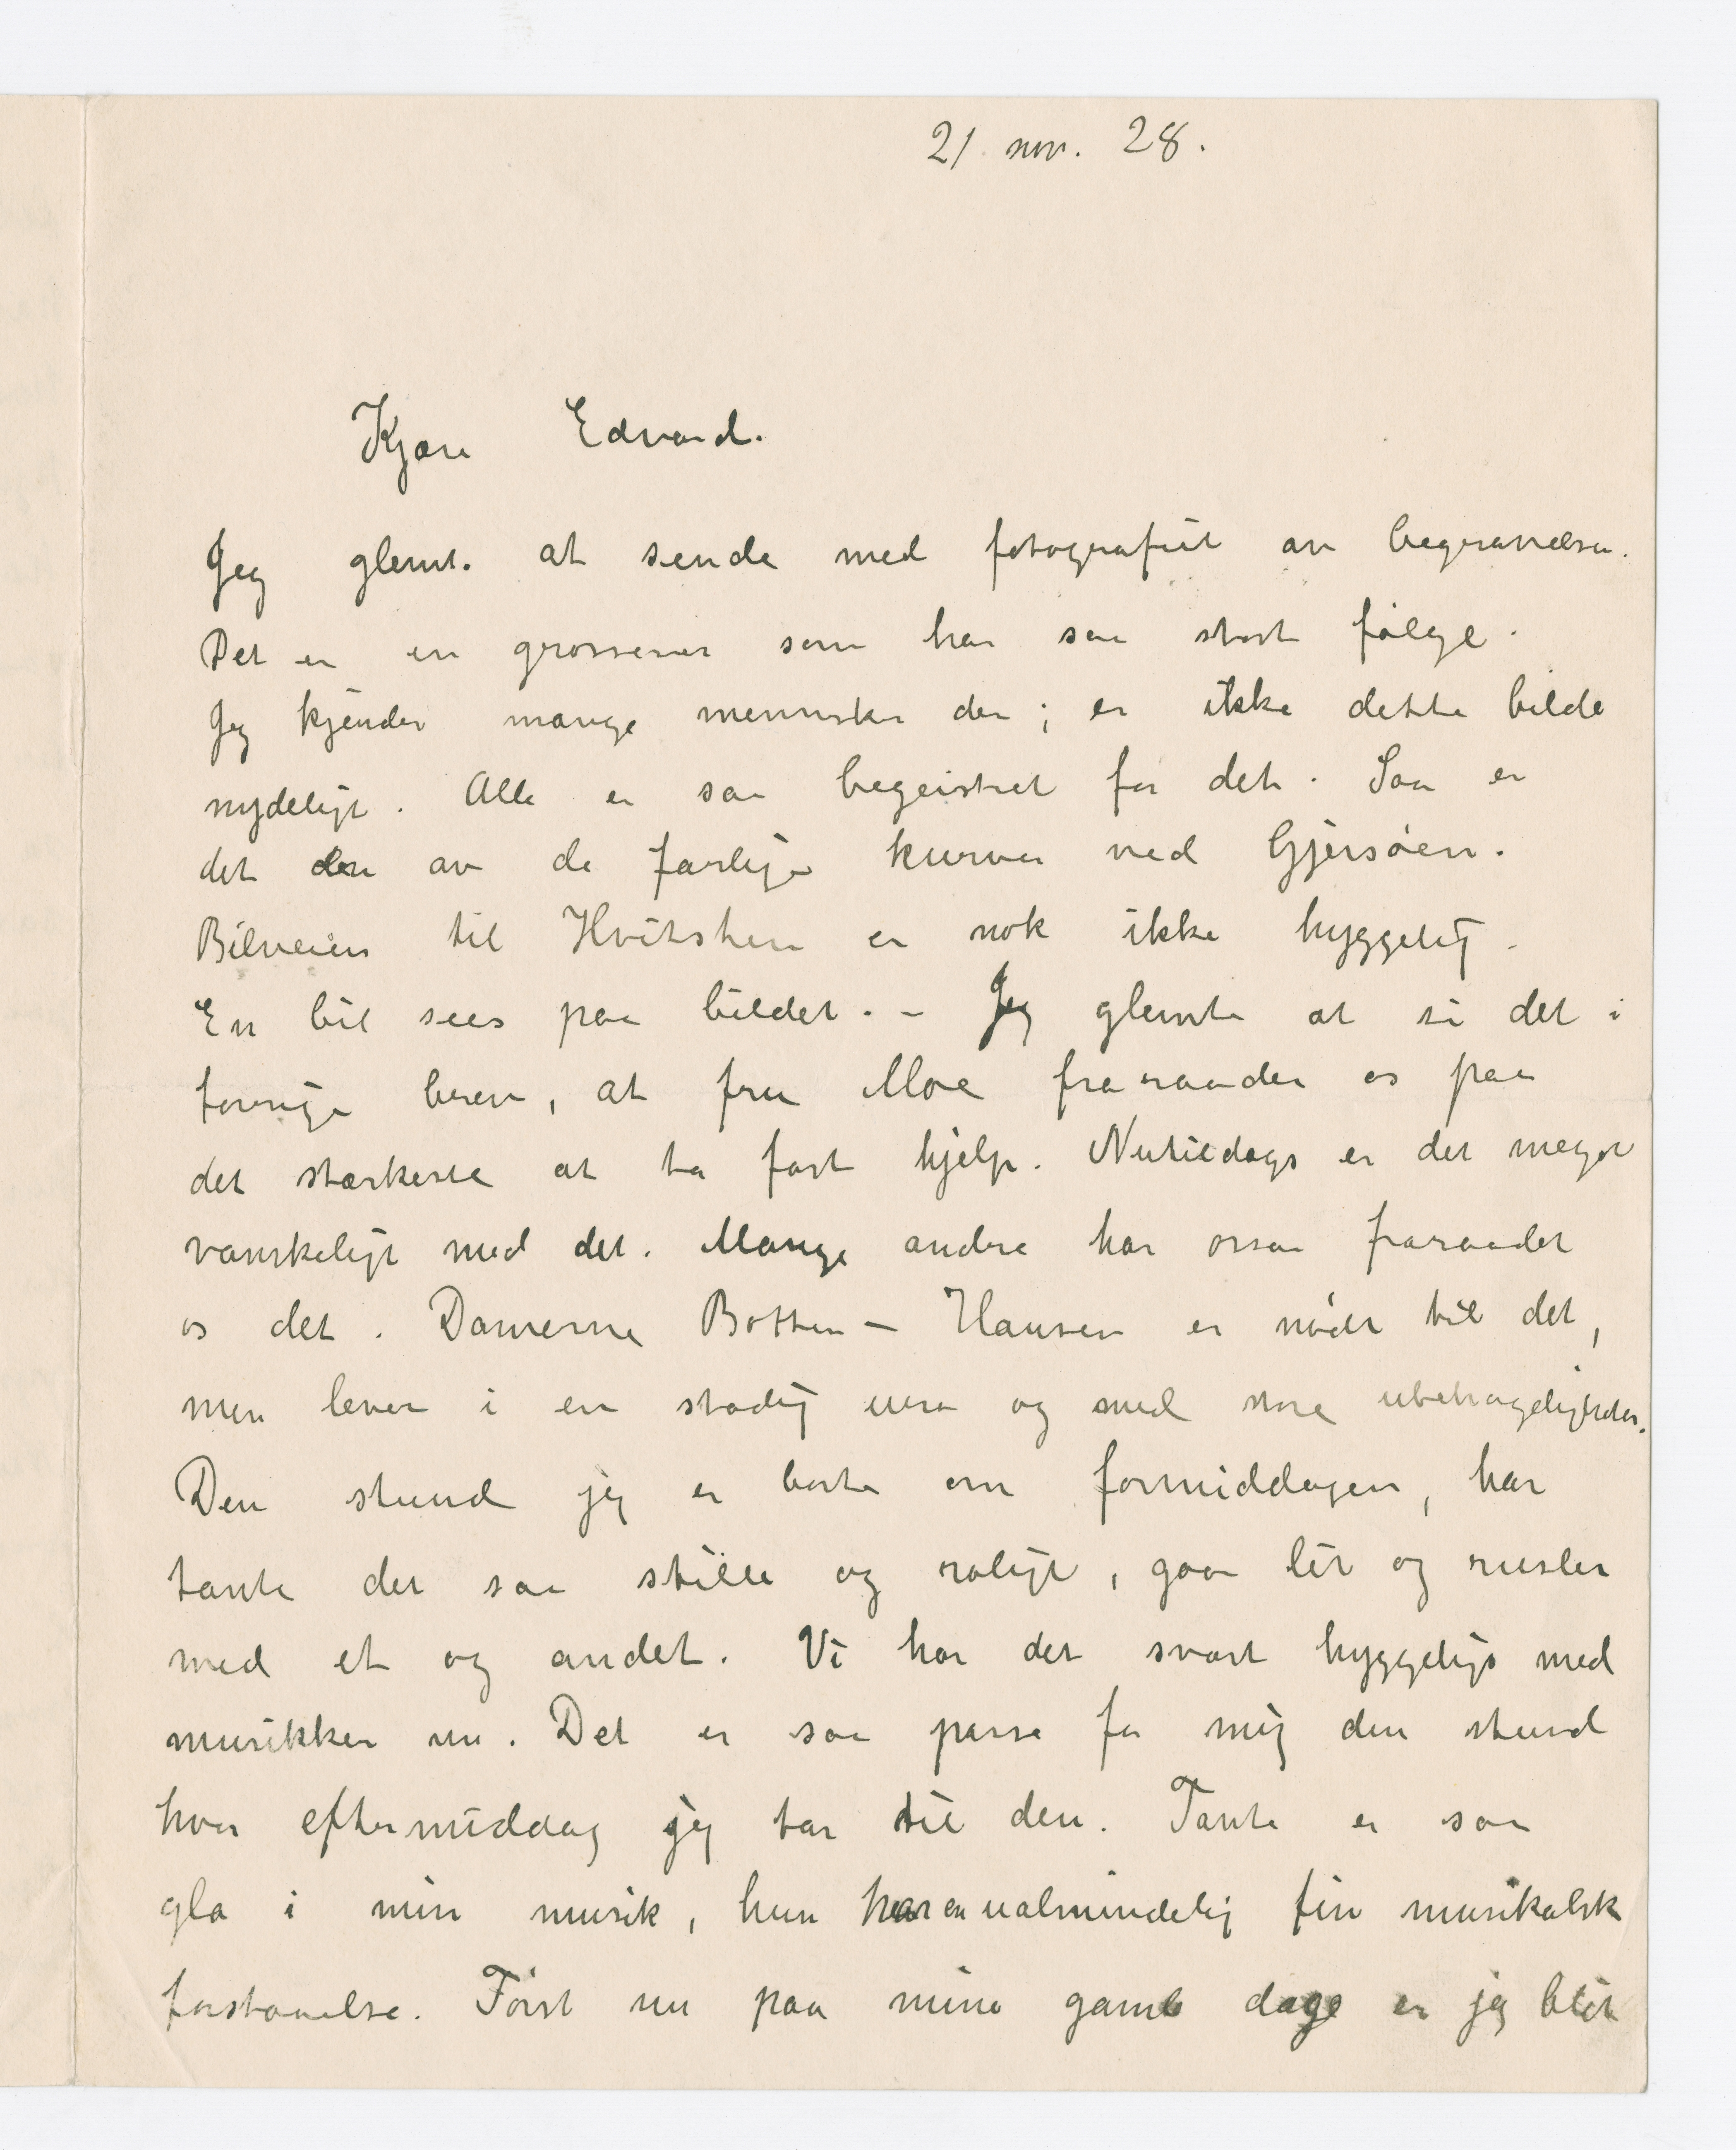 21 nov. 28.
Kjære Edvard.
Jeg glemte at sende med fotografiet av begravelsen.
Det er en grosserer som har saa stort følge.
Jeg kjender mange mennesker der; er ikke dette bilde
nydeligt. Alle er saa begeistret for det. Saa er
det den av de farlige kurver ved Gjersøen.
Bilveien til Hvitsten er nok ikke hyggelig.
En bil sees paa bildet. – Jeg glemte at si det i
forrige brev, at fru Moe fraraader os paa
det sterkeste at ta fast hjelp. Nutildags er det meget
vanskeligt med det. Mange andre har ossaa fraraadet
os det. Damerne Botten-Hansen er nødt til det,
men lever i en stadig uro og med store ubehageligheder.
Den stund jeg er borte om formiddagen, har
tante det saa stille og roligt, gaar lit og rusler
med et og andet. Vi har det svært hyggeligt med
musikken nu. Det er saa passe for mig den stund
hver eftermiddag jeg tar til den. Tante er saa
gla i min musik, hun har en ualmindelig fin musikalsk
forstaaelse. Først nu paa mine gamle dage er jeg blit